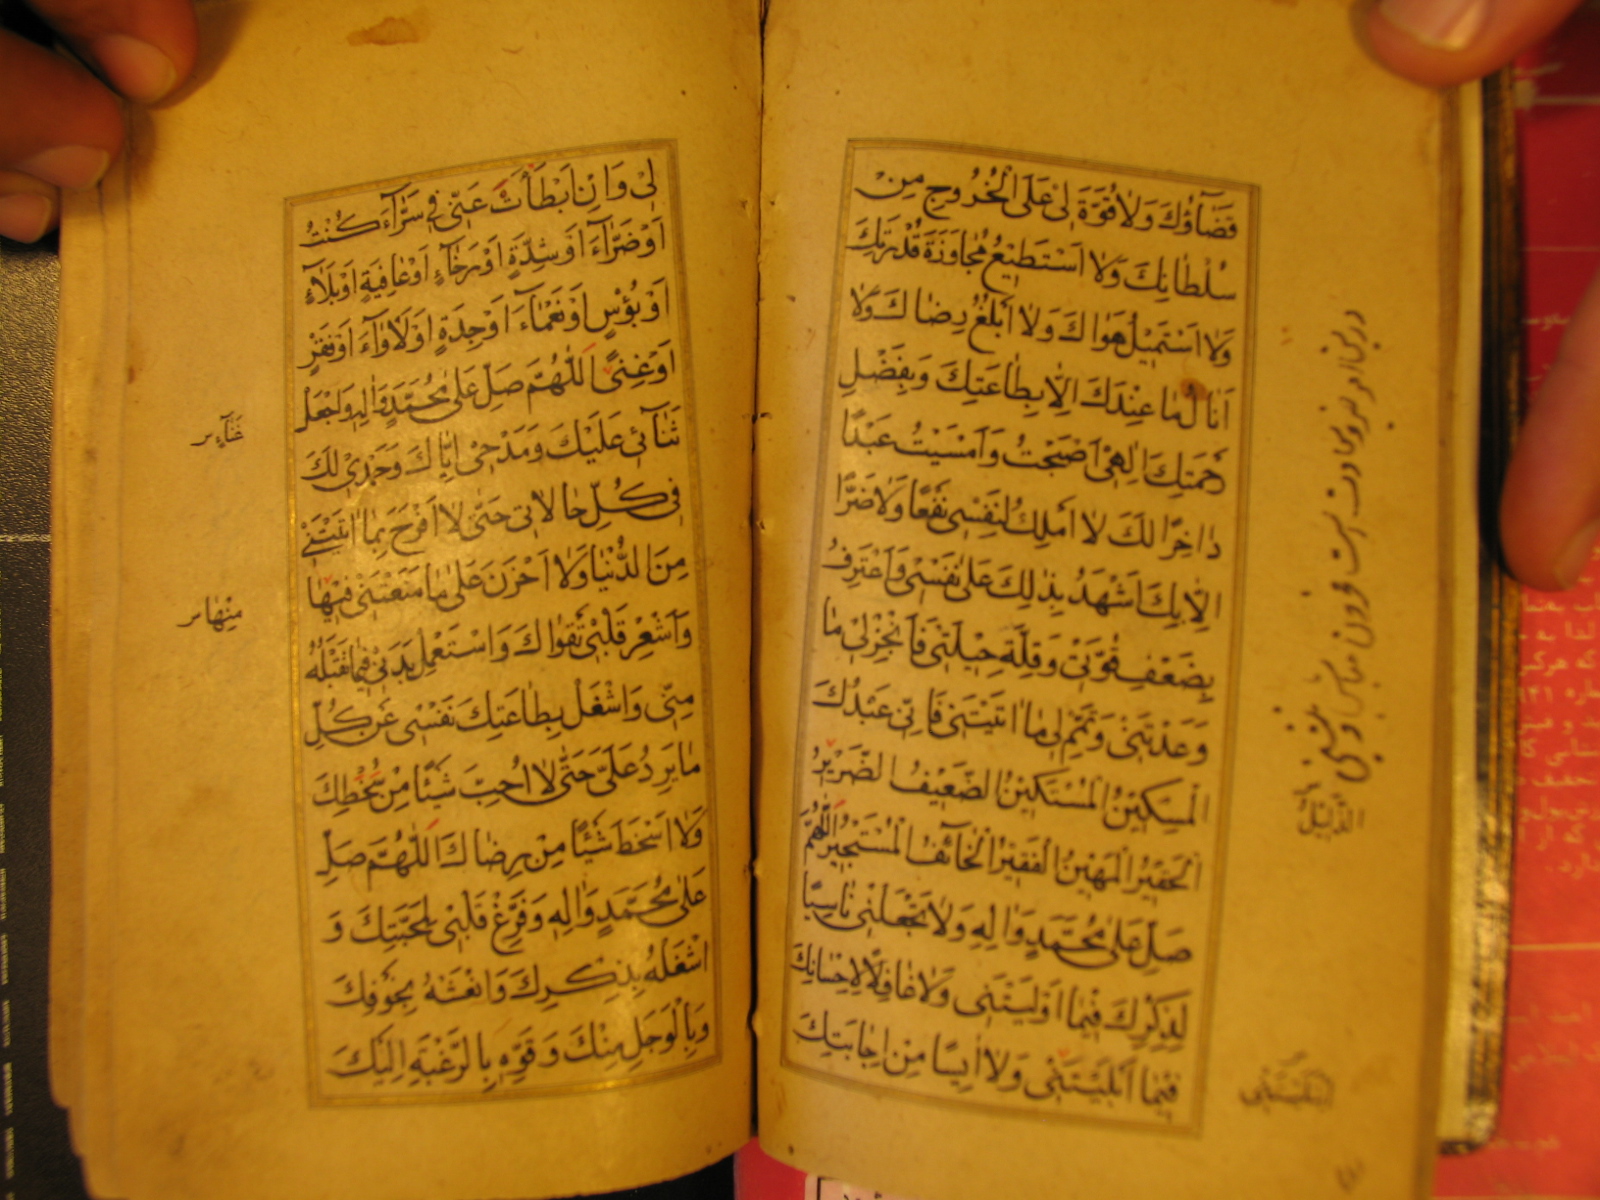 قَضَآؤُكَ وَلَا قُوَّةَ لِي عَلَى الْخُرُوجِ مِنْ
سُلْطَانِكَ وَلَا أَسْتَطِيعُ مُجَاوَزَةَ قُدْرَتِكَ
وَلَا أَسْتَمِيلُ هَوَاكَ وَلَا أَبْلُغُ رِضَاكَ وَلَا
أَنَالُ مَا عِنْدَكَ إِلَّا بِطَاعَتِكَ وَبِفَضْلِ
رَحْمَتِكَ إِلَهِي أَصْبَحْتُ وَأَمْسَيْتُ عَبْدًا
دَاخِرًا لَكَ لَا أَمْلِكُ لِنَفْسِي نَفْعًا وَلَا ضَرًّا
إِلَّا بِكَ أَشْهَدُ بِذَلِكَ عَلَى نَفْسِي وَأَعْتَرِفُ
بِضَعْفِ قُوَّتِي وَقِلَّةِ حِيلَتِي فَأَنْجِزْ لِي مَا
وَعَدْتَنِي وَتَمِّمْ لِي مَا آتَيْتَنِي فَإِنِّي عَبْدُكَ
الْمِسْكِينُ الْمُسْتَكِينُ الضَّعِيفُ الضَّرِيرُ
الْحَقِيرُ الْمَهِينُ الْفَقِيرُ الْخَائِفُ الْمُسْتَجِيرُ اللَّهُمَّ
صَلِّ عَلَى مُحَمَّدٍ وَآلِهِ وَلَا تَجْعَلْنِي نَاسِيًا
لِذِكْرِكَ فِيمَا أَوْلَيْتَنِي وَلَا غَافِلًا لِإِحْسَانِكَ
فِيمَا أَبْلَيْتَنِي وَلَا آيِسًا مِنْ إِجَابَتِكَ
الذَّلِيلُ
لِي وَإِنْ أَبْطَأَتْ عَنِّي فِي سَرَّآءَ كُنْتُ
أَوْ ضَرَّآءَ أَوْ شِدَّةٍ أَوْ رَخَآءٍ أَوْ عَافِيَةٍ أَوْ بَلَآءٍ
أَوْ بُؤْسٍ أَوْ نَعْمَآءَ أَوْ جِدَةٍ أَوْ لَأْوَآءَ أَوْ فَقْرٍ
أَوْ غِنًى اللَّهُمَّ صَلِّ عَلَى مُحَمَّدٍ وَآلِهِ وَاجْعَلْ
ثَنَآئِي عَلَيْكَ وَمَدْحِي إِيَّاكَ وَحَمْدِي لَكَ
فِي كُلِّ حَالَاتِي حَتَّى لَا أَفْرَحَ بِمَا آتَيْتَنِي
مِنَ الدُّنْيَا وَلَا أَحْزَنَ عَلَى مَا مَنَعْتَنِي فِيهَا
وَأَشْعِرْ قَلْبِي تَقْوَاكَ وَاسْتَعْمِلْ بَدَنِي فِيمَا تَقْبَلُهُ
مِنِّي وَاشْغَلْ بِطَاعَتِكَ نَفْسِي عَنْ كُلِّ
مَا يَرِدُ عَلَيَّ حَتَّى لَا أُحِبَّ شَيْئًا مِنْ سُخْطِكَ
وَلَا أَسْخَطَ شَيْئًا مِنْ رِضَاكَ اللَّهُمَّ صَلِّ
عَلَى مُحَمَّدٍ وَآلِهِ وَفَرِّغْ قَلْبِي لِمَحَبَّتِكَ وَ
اشْغَلْهُ بِذِكْرِكَ وَانْعَشْهُ بِخَوْفِكَ
وَبِالْوَجَلِ مِنْكَ وَقَوِّهِ بِالرَّغْبَةِ إِلَيْكَ
غَنَآءٍ س
مِنْهَا س